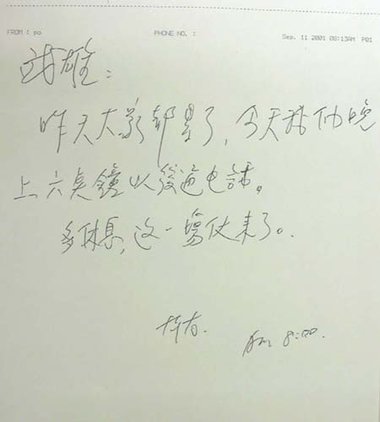 FROM : po PHONE NO. : Sep. 11 2001 08:13AM P01
雄：
昨天大家都累了，今天我们晚
上六奌鐘以後通电話。
多休息，这一場仗来了。
Am 8:00.